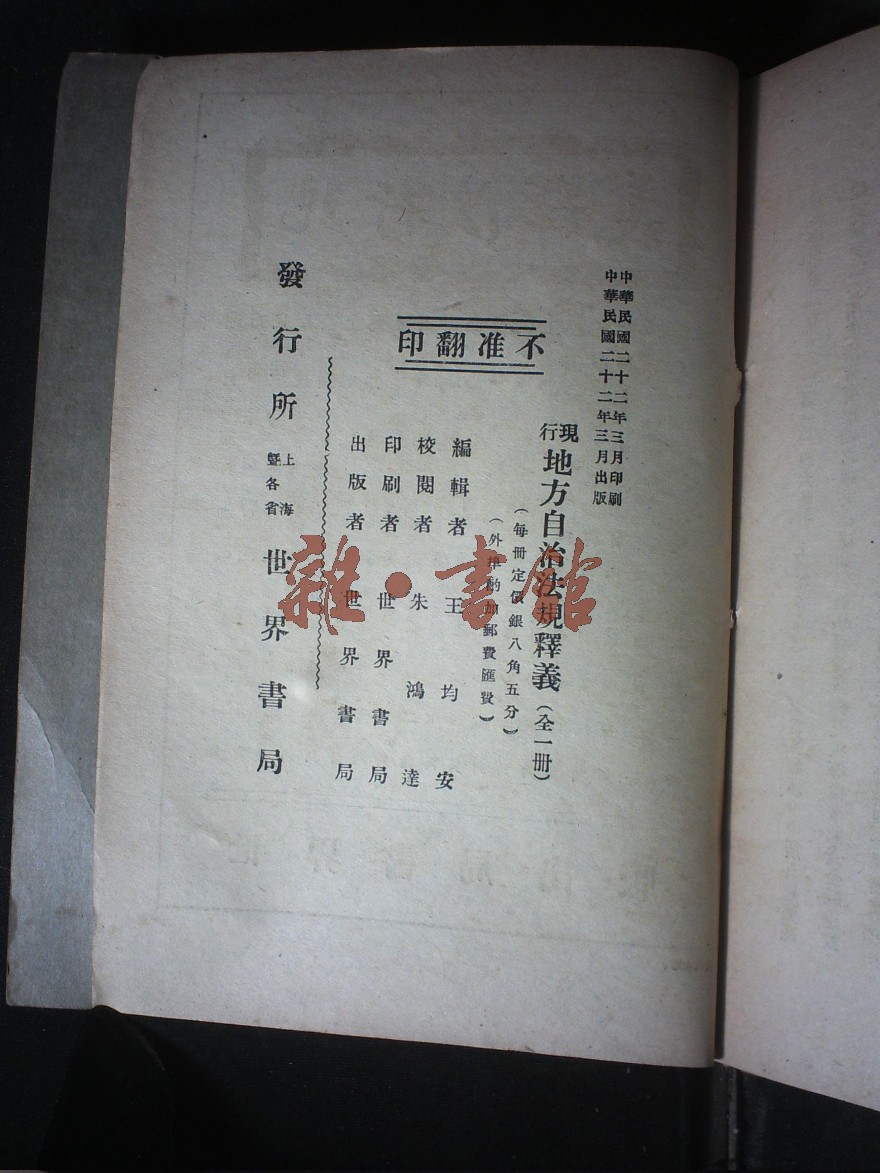 中華民國二十二年三月印刷
中華民國二十二年三月出版
不准翻印
現行地方自治法規釋義(全一冊)
(每冊定價銀八角五分)
(外埠酌加郵費匯費)
編輯者 王均安
校閱者 朱鴻達
印刷者 世界書局
出版者 世界書局
發行所 上海暨各省 世界書局
雜·書館